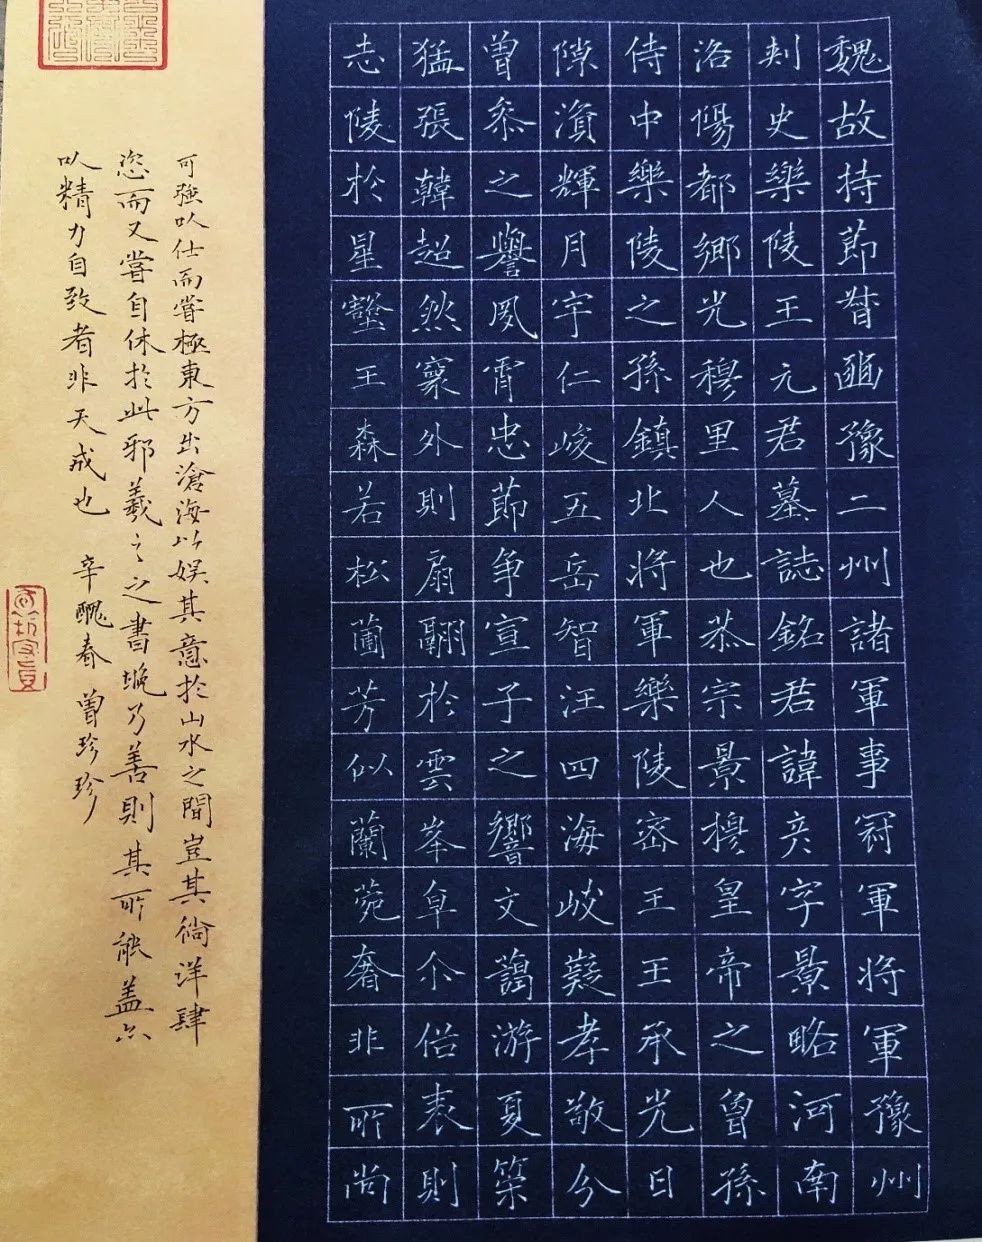 魏故持節督豳豫二州諸軍事冠軍將軍豫州
刾史樂陵王元君墓誌銘君諱彦字景略河南
洛陽都鄉光穆里人也恭宗景穆皇帝之曾孫
侍中樂陵之孫鎮北將軍樂陵密王王承光日
隙濆輝月宇仁峻五岳智汪四海岐嶷孝敬分
曾叅之譽夙霄忠節争宣子之響文藹游夏策
猛張韓超然寡外則扇翮於雲峯皐仐俗表則
志陵於星壑王森若松蘭芳似蘭菀奢非所尚
可強㕥仕而嘗極東方出滄海以娱其意於山水之間豈其徜洋肆
恣而又嘗自休於此邪羲之之書晚乃善則其所能盖亦
㕥精力自致者非天成也 辛醜春 曾珍珍